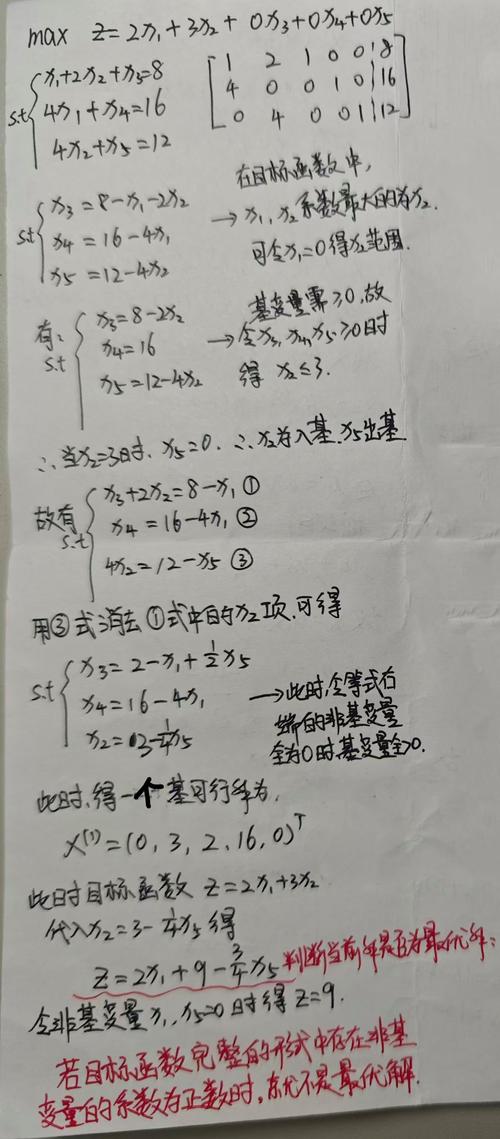 max z=2x₁+3x₂+0x₃+0x₄+0x₅
s.t { x₁+2x₂+x₃=8
4x₁+x₄=16
4x₂+x₅=12
[ 1 2 1 0 0 | 8
4 0 0 1 0 | 16
0 4 0 0 1 | 12 ]
s.t { x₃=8-x₁-2x₂
x₄=16-4x₁
x₅=12-4x₂
在目标函数中,
→ x₁, x₂系数最大的为x₂.
可令x₁=0得x₂范围.
有: s.t { x₃=8-2x₂
x₄=16
x₅=12-4x₂
基变量需≥0,故
→ 令x₃,x₄,x₅≥0时
得 x₂≤3.
∴当x₂=3时, x₅=0. ∴x₂为入基, x₅出基
故有 s.t { x₃+2x₂=8-x₁ ①
x₄=16-4x₁ ②
4x₂=12-x₅ ③
用③式消去①式中的x₂项,可得
s.t { x₃=2-x₁+½x₅
x₄=16-4x₁
x₂=3-¼x₅
→此时,令等式右
端的非基变量
全为0时,基变量全≥0.
此时,得一个基可行解为,
X⁽¹⁾=(0, 3, 2, 16, 0)ᵀ
此时目标函数 z=2x₁+3x₂
代入x₂=3-¼x₅得
z=2x₁+9-¾x₅ 判断当前解是否为最优解:
令非基变量x₁, x₅=0时得z=9.
若目标函数完整的形式中存在非基
变量的系数为正数时,就不是最优解.